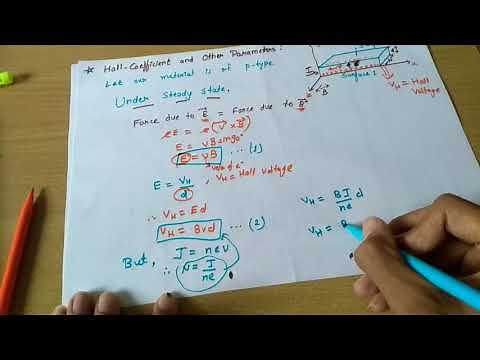 * Hall-Coefficient and Other Parameters:
Let our material is of p-type
Under Steady state,
Force due to E = Force due to B
eE = e(V×B)
E = VB sin90°
E = VB ... (1)
E = VH/d, VH = Hall Voltage
∴ VH = Ed
VH = Bvd ... (2)
But, J = nev
∴ v = J/ne
I
B
VH = Hall Voltage
VH = BJ/ne d
VH = B